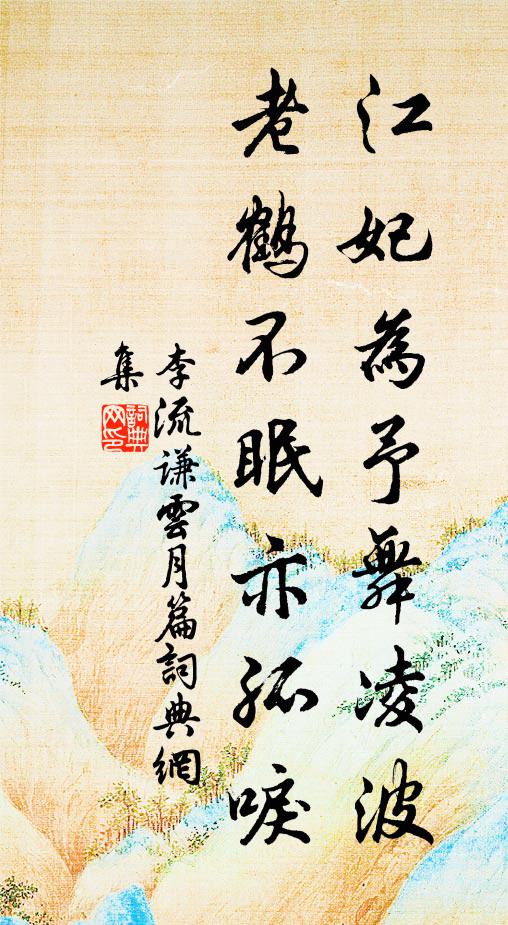 江妃為予舞凌波
老鶴不眠亦孤唳
李流謙雲月篇詞典網
集
詞典
网印